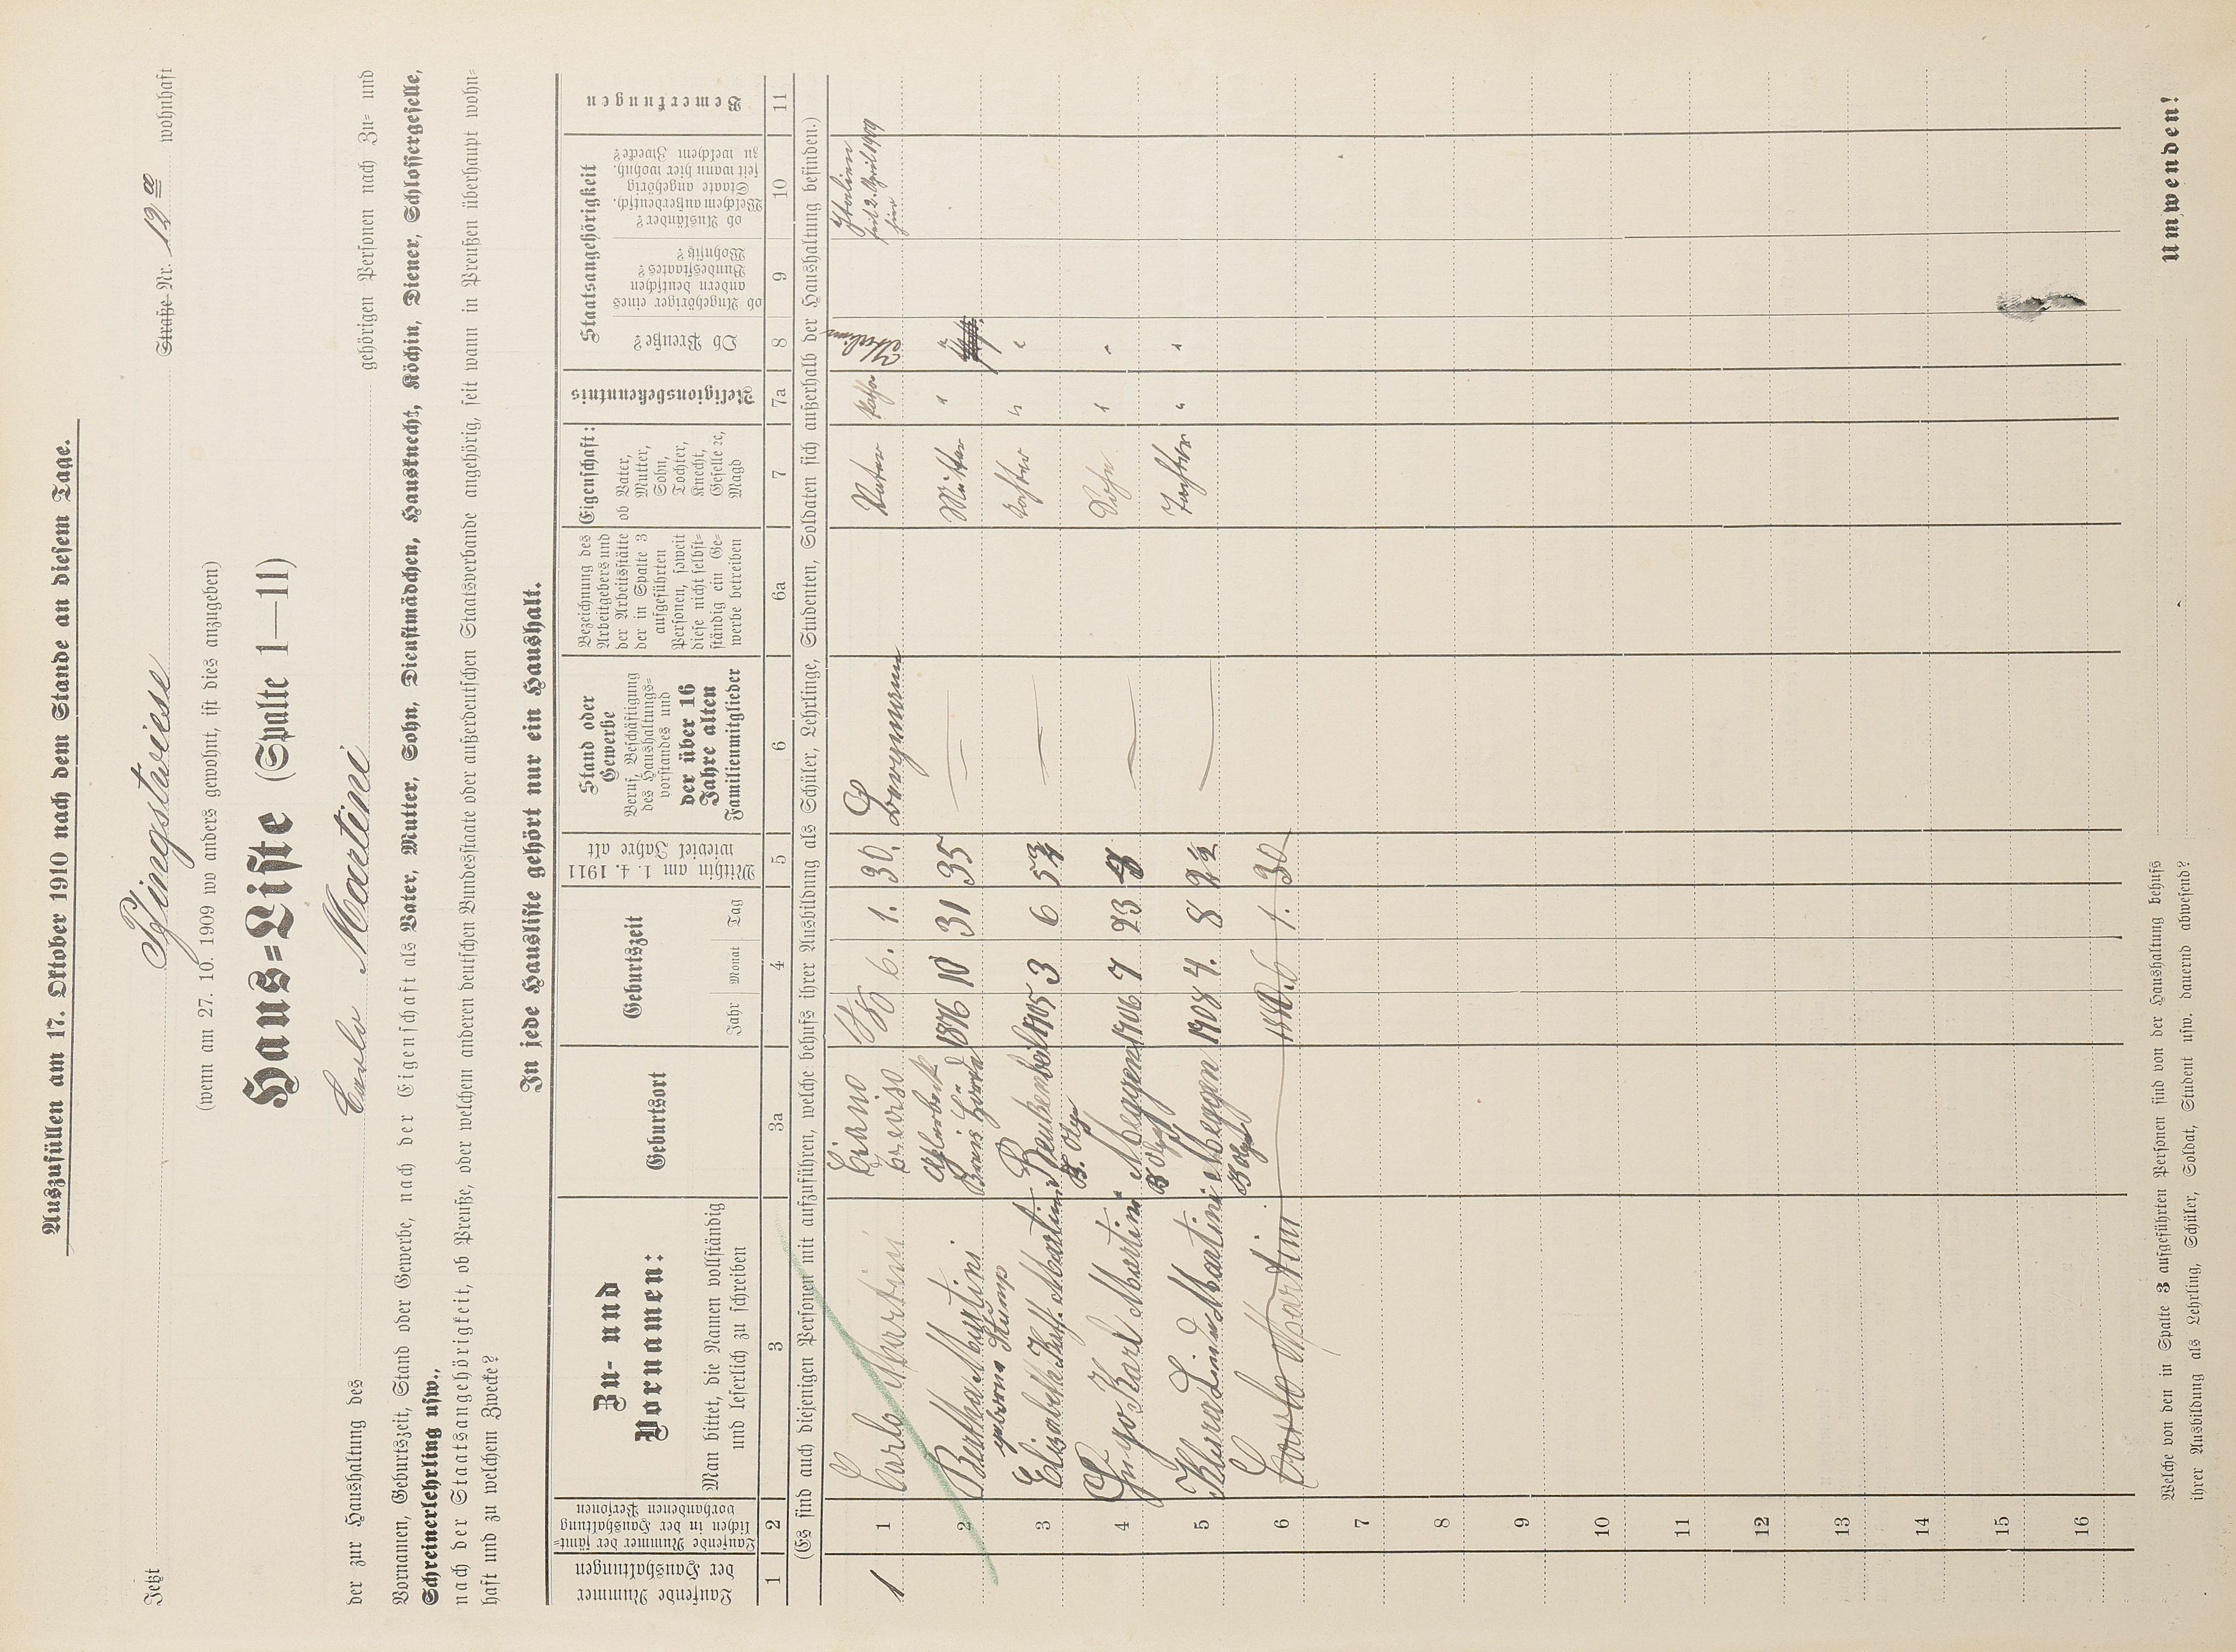 Auszufüllen am 17. Oktober 1910 nach dem Stande an diesem Tage.
Jetzt Pfingstwiese Straße Nr. 12 a wohnhaft
(wenn am 27. 10. 1909 wo anders gewohnt, ist dies anzugeben)
Haus=Liste (Spalte 1—11)
der zur Haushaltung des Carlo Martini gehörigen Personen nach Zu= und
Vornamen, Geburtszeit, Stand oder Gewerbe, nach der Eigenschaft als Vater, Mutter, Sohn, Dienstmädchen, Hausknecht, Köchin, Diener, Schlossergeselle,
Schreinerlehrling usw.,
nach der Staatsangehörigkeit, ob Preuße, oder welchem anderen deutschen Bundesstaate oder außerdeutschen Staatsverbande angehörig, seit wann in Preußen überhaupt wohn=
haft und zu welchem Zwecke?
In jede Hausliste gehört nur ein Haushalt.
Laufende Nummer
der Haushaltungen
Laufende Nummer der sämt=
lichen in der Haushaltung
vorhandenen Personen
Zu- und
Vornamen:
Man bittet, die Namen vollständig
und leserlich zu schreiben
Geburtsort
Geburtszeit
Jahr Monat Tag
Mithin am 1. 4. 1911
wieviel Jahre alt
Stand oder
Gewerbe
Beruf, Beschäftigung
des Haushaltungs=
vorstandes und
der über 16
Jahre alten
Familienmitglieder
Bezeichnung des
Arbeitgebers und
der Arbeitsstätte
der in Spalte 3
aufgeführten
Personen, soweit
diese nicht selbst=
ständig ein Ge=
werbe betreiben
Eigenschaft:
ob Vater,
Mutter,
Sohn,
Tochter,
Knecht,
Geselle ec,
Magd
Religionsbekenntnis
Staatsangehörigkeit
Ob Preuße?
ob Angehöriger eines
andern deutschen
Bundesstaates?
Wohnsitz?
ob Ausländer?
Welchem außerdeutsch.
Staate angehörig
seit wann hier wohnh.
zu welchem Zwecke?
Bemerkungen
1 2 3 3a 4 5 6 6a 7 7a 8 9 10 11
(Es sind auch diejenigen Personen mit aufzuführen, welche behufs ihrer Ausbildung als Schüler, Lehrlinge, Studenten, Soldaten sich außerhalb der Haushaltung befinden.)
1 1 Carlo Martini 6. 1. 30. Bergmann Vater Kath Italien
seit 2. April 1909
hier
2 Bertha Martini 1876 10 31 35 Mutter "
geborene Stump
3 Elisabeth Kath. Martini 1905 3 6 Tochter " "
B. Olpe
4 Hugo Karl Martini Meggen 1906 7 23 Sohn " "
B Olpe
5 Klara Martini Meggen 1908 4. 8 2½ Tochter " "
B Olpe
6 Carlo Martini 1880. 6 1. 30
7
8
9
10
11
12
13
14
15
16
Welche von den in Spalte 3 aufgeführten Personen sind von der Haushaltung behufs
ihrer Ausbildung als Lehrling, Schüler, Soldat, Student usw. dauernd abwesend?
Umwenden!